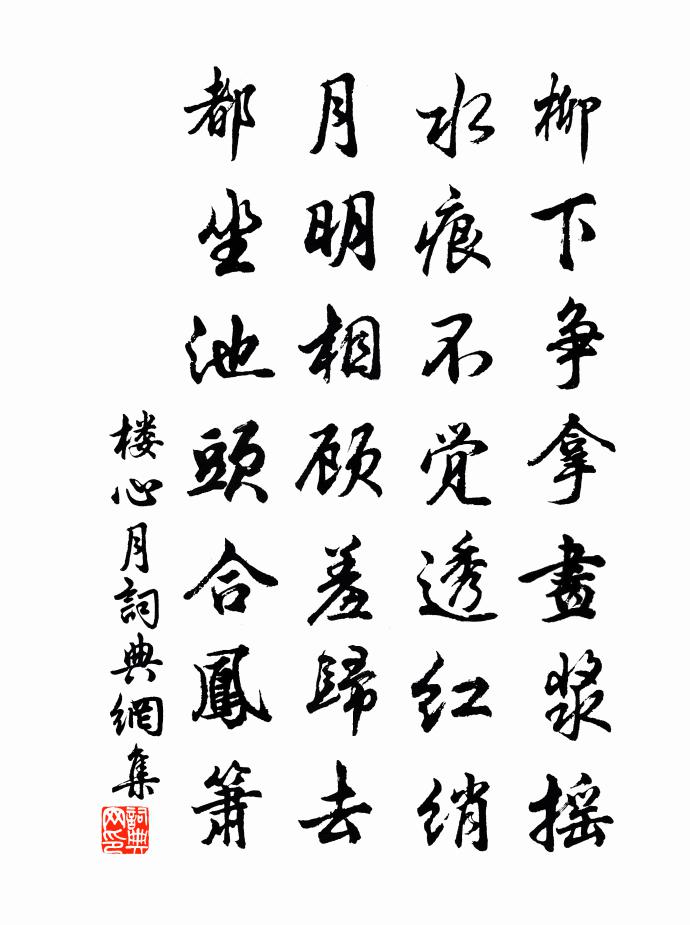 柳下争拿畫漿摇
水痕不覚透红绡
月明相顾羞歸去
都坐池頭合鳳箫
楼心月詞典網集
詞典网印